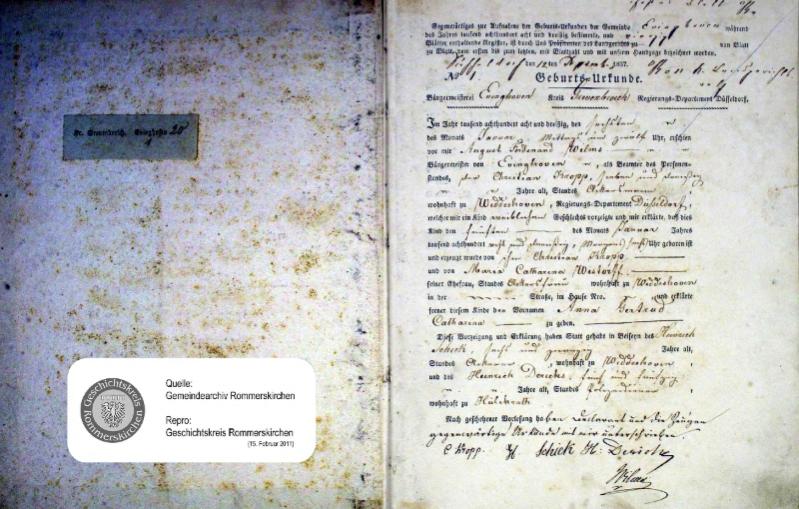 Kr. Grevenbroich. Evinghofen 20
Quelle:
Gemeindearchiv Rommerskirchen
Repro:
Geschichtskreis Rommerskirchen
(15. Februar 2011)
Geschichtskreis
Rommerskirchen
Gegenwärtiges zur Aufnahme der Geburts-Urkunden der Gemeinde Evinghoven während
des Jahres tausend achthundert acht und dreißig bestimmte, aus
Blätter enthaltende Register, ist durch Uns Präsidenten des Landgerichts zu von Blatt
zu Blatt, vom ersten bis zum letzten, mit Blattzahl und mit unserm Handzuge bezeichnet worden.
Düsseldorf den 12ten Dezemb. 1837.
No. 1 Geburts-Urkunde.
Bürgermeisterei Evinghoven Kreis Grevenbroich Regierungs-Departement Düsseldorf,
Im Jahr tausend achthundert acht und dreißig, den sechsten
des Monats Januar, Mittags um zwölf Uhr, erschien
vor mir August Ferdinand Wilms
Bürgermeister von Evinghoven, als Beamter des Personen-
standes, der Christian Kropp, sieben und dreißig
Jahre alt, Standes Ackersmann
wohnhaft zu Widdeshoven, Regierungs-Departement Düsseldorf,
welcher mir ein Kind weiblichen Geschlechts vorzeigte und mir erklärte, daß dies
Kind den fünften des Monats Januar Jahres
tausend achthundert acht und dreißig, Morgens sechs Uhr geboren ist
und erzeugt wurde von ihm Christian Kropp
und von Maria Catharina Westorff
seiner Ehefrau, Standes Ackersfrau wohnhaft zu Widdeshoven
in der Straße, im Hause Nro. und erklärte
ferner diesem Kinde den Vornamen Anna Gertrud
Catharina zu geben.
Diese Vorzeigung und Erklärung haben Statt gehabt in Beiseyn des Heinrich
Schiek, sechs und zwanzig Jahre alt,
Standes Ackerer, wohnhaft zu Widdeshoven,
und des Heinrich Derichs, fünf und fünfzig
Jahre alt, Standes Polizeidiener
wohnhaft zu Hülchrath
Nach geschehener Vorlesung haben Declarant und die Zeugen
gegenwärtige Urkunde mit mir unterschrieben.
C Kropp. H Schiek H: Derichs
Wilms